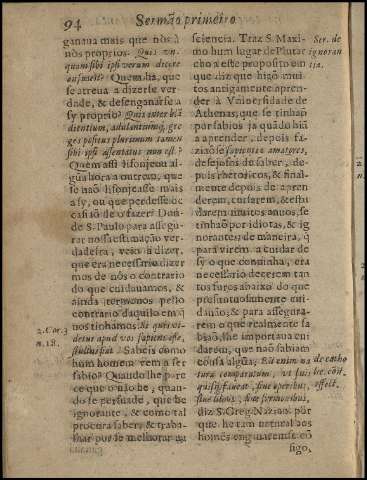 94
Sermão primeiro
ganaua mais que nòs à
nòs proprios. Quis vn-
quam sibi ipsi verum dicere
ausus est? Quem ha, que
se atreua a dizerse ver
dade, & desenganarse a
sy proprio? Quis inter blã
dientium, adulantiumq; gre
ges positus plurimum tamen
sibi ipsi assentatus non est?
Quem assi lisonjeou al-
gũa hora a outrem, que
se naõ lisonjeasse mais
a sy, ou que perdesse oc
casiaõ de o fazer? Don
de S. Paulo para assegu-
rar nossa estimaçaõ ver-
dadeira, veio a dizer,
que era necessario dizer
mos de nòs o contrario
do que cuidauamos, &
ainda termonos pello
contrario daquilo em q̃
nos tinhamos. Si quis vi-
detur apud vos sapiens esse,
stultus fiat. Sabeis como
hum homem vem a ser
sabio? Quando lhe pare
ce que o naõ he, quan-
do se persuade, que he
ignorante, & como tal
procura saber, & traba-
lhar por se melhorar na
2. Cor. 3
n. 18.
sciencia. Traz S. Maxi-
mo hum lugar de Plutar
cho a este proposito em
que diz que hiaõ mui-
tos antigamente apren-
der à Vniuersidade de
Athenas, que se tinhaõ
por sabios ja quãdo hiã
a aprender, depois fa-
ziaõse sapientiæ amatores,
desejosos do saber, de-
pois rhetoricos, & final-
mente depois de apren
derem, cursarem, & estu
darem muitos annos, se
tinhaõ por idiotas, & ig
norantes: de maneira, q̃
para virem a cuidar de
sy o que conuinha, era
necessario decerem tan
tos furos abaixo do que
presuntuosamente cui-
dauaõ; & para assegura-
rem o que realmente sa
biaõ, lhe importaua cui
darem, que naõ sabiam
cousa algũa. Est enim na
tura comparatum, vt suis
quisq; faueat, siue operibus,
siue libris, siue sermonibus,
diz S. Greg. Nazian. por
que he tam natural aos
homẽs engrãrense cõ
sigo,
Ser. de
ignoran
tia.